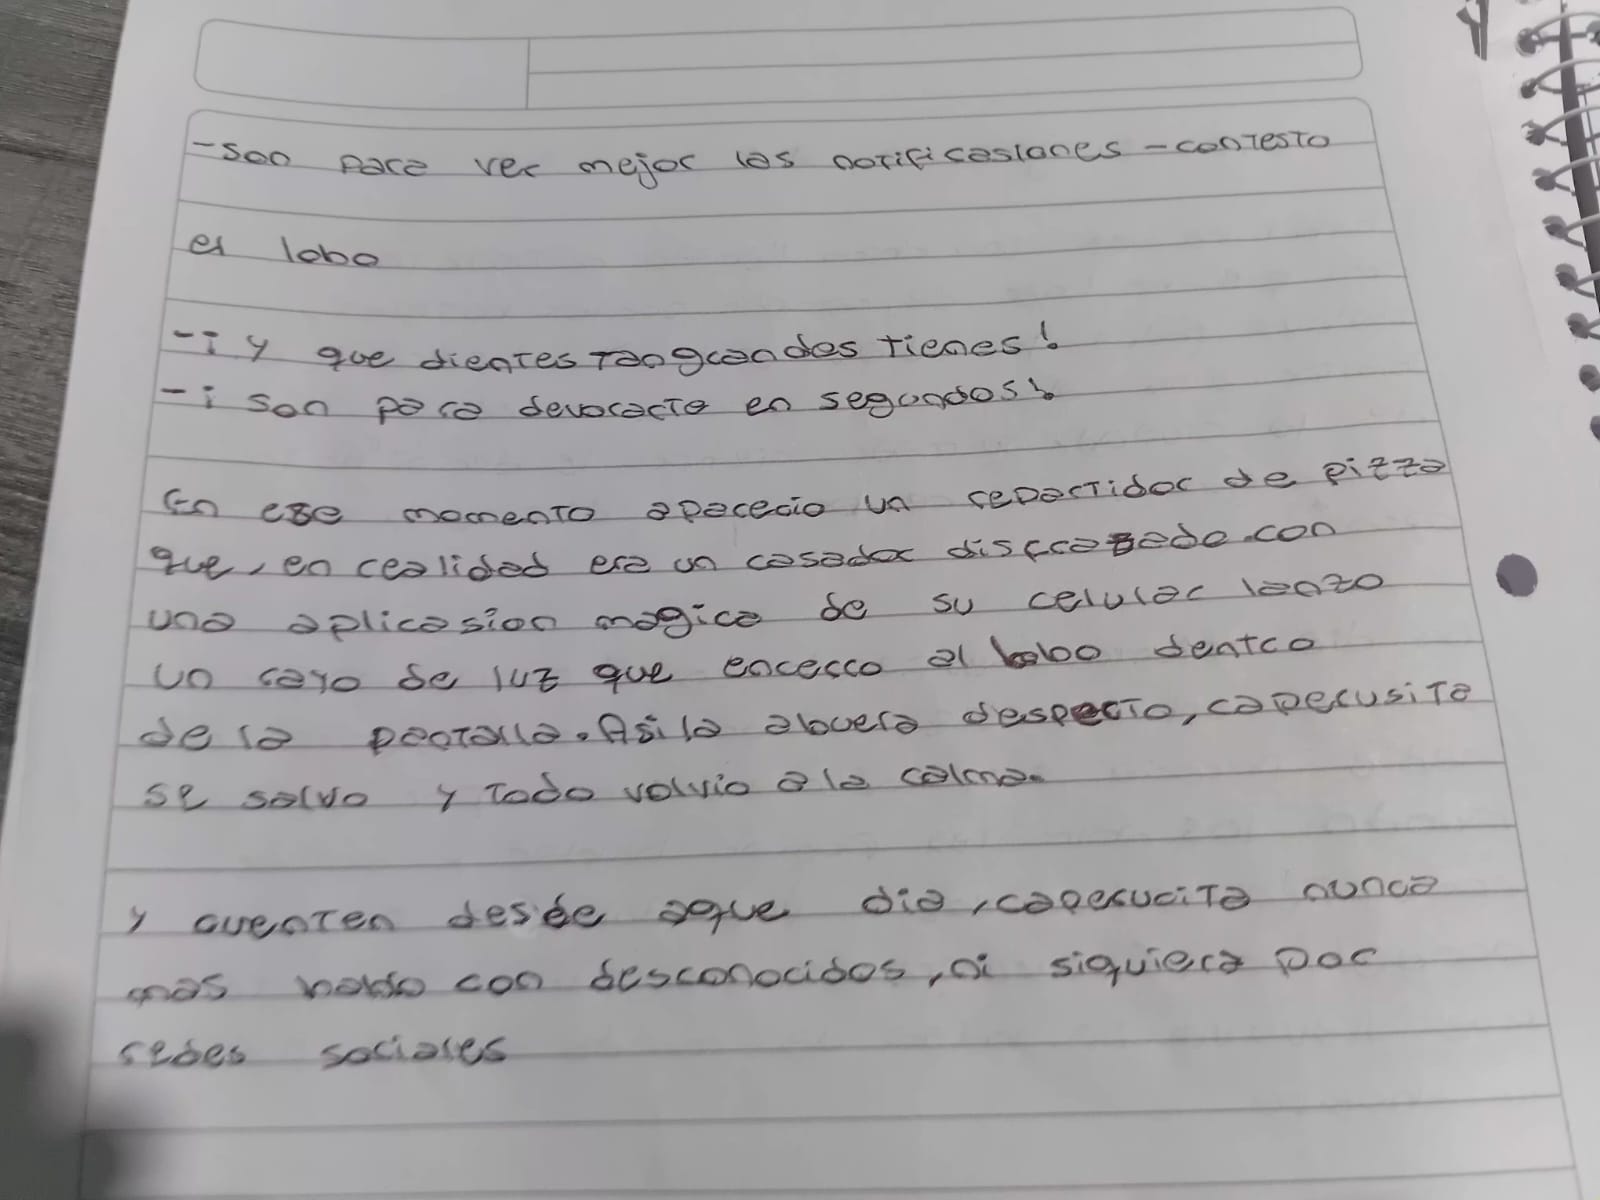 - son para ver mejor las notificasiones - contesto
el lobo
- ¡ y que dientes tan grandes tienes !
- ¡ son para devorarte en segundos !
En ese momento aparecio un repartidor de pizza
que, en realidad era un casador disfrazado. con
una aplicasion magica de su celular lanzo
un rayo de luz que encerro al lobo dentro
de la pantalla. Asi la abuela desperto, caperusita
se salvo y todo volvio a la calma.
y cuenten desde aque dia, caperucita nunca
mas hablo con desconocidos, ni siquiera por
redes sociales